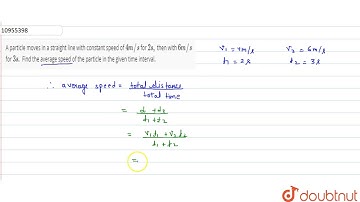 10955398
A particle moves in a straight line with constant speed of 4m/s for 2s, then with 6m/s
for 3s. Find the average speed of the particle in the given time interval.
v₁ = 4m/s v₂ = 6m/s
t₁ = 2s t₂ = 3s
∴ average speed = total distance / total time
= d₁ + d₂ / t₁ + t₂
= v₁t₁ + v₂t₂ / t₁ + t₂
=
doubtnut